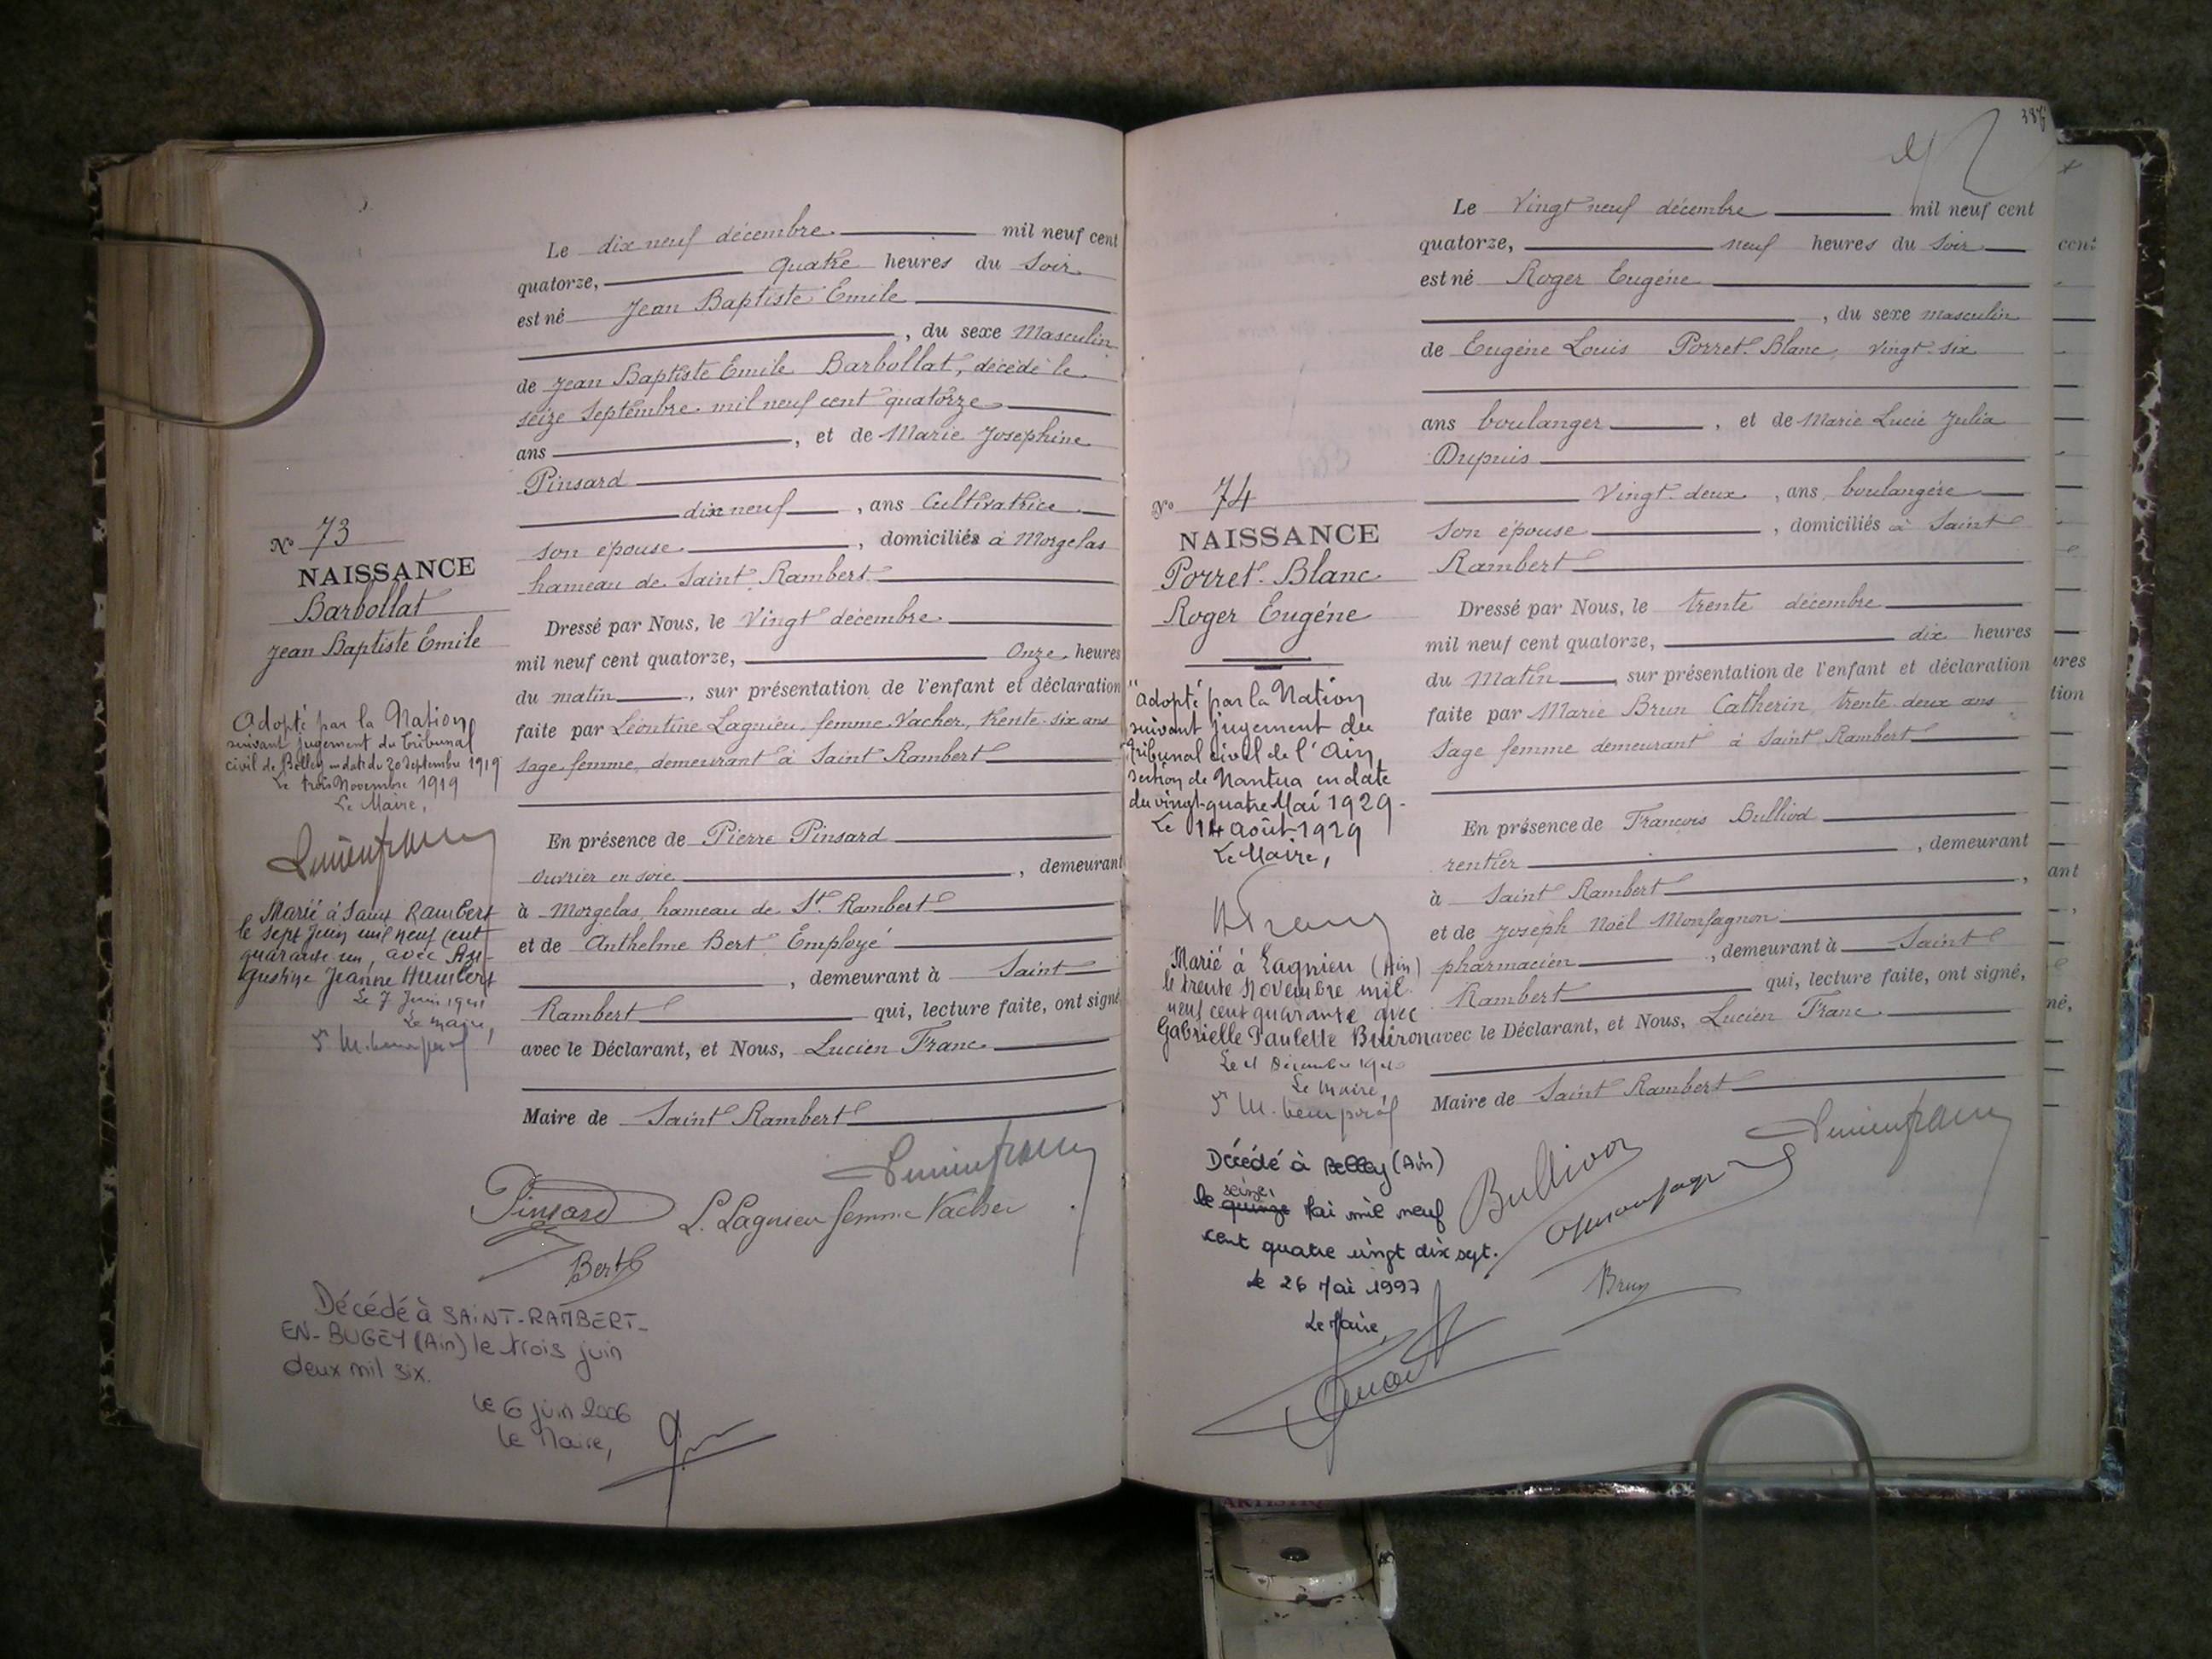 Le dix neuf décembre mil neuf cent
quatorze, quatre heures du soir
est né Jean Baptiste Emile
, du sexe Masculin
de Jean Baptiste Emile Barbollat, décédé le
seize Septembre mil neuf cent quatorze
ans , et de Marie Josephine
Pinsard
dix neuf , ans Cultivatrice
son épouse , domiciliés à Morgelas
hameau de Saint Rambert
Dressé par Nous, le Vingt décembre
mil neuf cent quatorze, Onze heures
du matin , sur présentation de l'enfant et déclaration
faite par Léontine Lagnieu, femme Vacher, trente-six ans
sage femme, demeurant à Saint Rambert
En présence de Pierre Pinsard
ouvrier en soie , demeurant
à Morgelas, hameau de St. Rambert
et de Anthelme Bert Employé
, demeurant à Saint
Rambert qui, lecture faite, ont signé
avec le Déclarant, et Nous, Lucien Franc
Maire de Saint Rambert
Pinsard L. Lagnieu femme Vacher
Bert
No 73
NAISSANCE
Barbollat
Jean Baptiste Emile
Adopté par la Nation
suivant jugement du tribunal
civil de Belley en date du 20 Septembre 1919
Le trois Novembre 1919
Le Maire,
Lucien franc
Marié à Saint Rambert
le sept juin mil neuf cent
quarante un, avec Au-
gustine Jeanne Humbert
Le 7 Juin 1941
Le maire,
Décédé à SAINT-RAMBERT-
EN-BUGEY (Ain) le trois juin
deux mil six.
le 6 juin 2006
le Maire,
387
Le Vingt neuf décembre mil neuf cent
quatorze, neuf heures du soir
est né Roger Eugéne
, du sexe masculin
de Eugéne Louis Porret-Blanc, vingt-six
ans boulanger , et de Marie Lucie Julia
Dupuis
Vingt-deux , ans boulangére
son épouse , domiciliés à Saint
Rambert
Dressé par Nous, le trente décembre
mil neuf cent quatorze, dix heures
du Matin , sur présentation de l'enfant et déclaration
faite par Marie Brun Catherin, trente deux ans
sage femme demeurant à Saint Rambert
En présence de François Bulliod
rentier , demeurant
à Saint Rambert ,
et de Joseph Noël Monfagnon
pharmacien , demeurant à Saint
Rambert qui, lecture faite, ont signé,
avec le Déclarant, et Nous, Lucien Franc
Maire de Saint Rambert
Lucien franc
Bulliod
Brun
No 74
NAISSANCE
Porret-Blanc
Roger Eugéne
"Adopté par la Nation
suivant jugement du
Tribunal civil de l'Ain,
section de Nantua en date
du vingt-quatre Mai 1929.
Le 14 août 1929
Le Maire,
Marié à Lagnieu (Ain)
le trente Novembre mil
neuf cent quarante avec
Gabrielle Paulette Buiron
Le 4 Décembre 1940
Le Maire,
Décédé à Belley (Ain)
seize
le quinze Mai mil neuf
cent quatre vingt dix sept.
le 26 Mai 1997
Le Maire,
ARTISTIQ